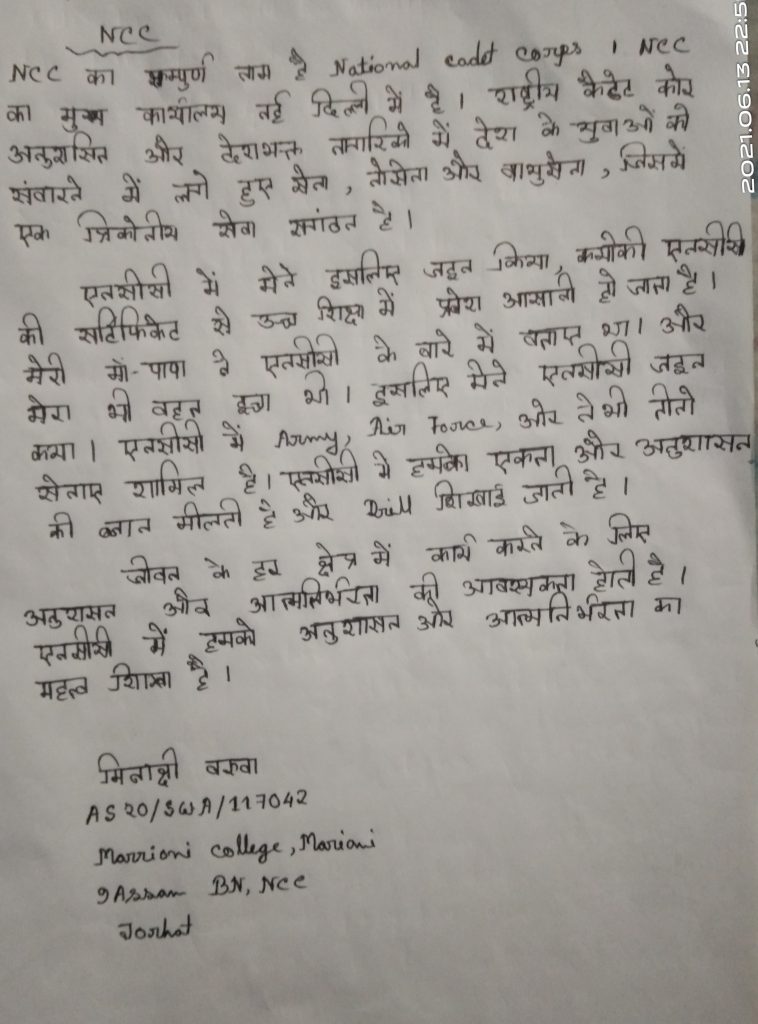 NCC
NCC का सम्पुर्ण नाम है National cadet corps । NCC
का मुख्य कार्यालय नई दिल्ली में है । राष्ट्रीय कैडेट कोर
अनुशासित और देशभक्त नागरिको में देश के युवाओं को
संवारने में लगे हुए सेना , नौसेना और वायुसेना , जिसमें
एक त्रिकोनीय सेवा सगंठन है ।
एनसीसी में मेने इसलिए जइन किया, कयोकी एनसीसी
की सर्टिफिकेट से उच्च शिक्षा में प्रवेश आसानी हो जाता है ।
मेरी माँ-पापा ने एनसीसी के बारे में बताए था । और
मेरा भी बहत इछा थी । इसलिए मेने एनसीसी जइन
कया । एनसीसी में Army, Air Force, और नेभी तीनो
सेनाए शामिल है । एनसीसी मे हमको एकता और अनुशासन
की ज्ञान मीलती है और Drill शिखाई जाती है ।
जीवन के हर क्षेत्र में कार्य करने के लिए
अनुशासन और आत्मनिर्भरता की आबश्यकता होती है ।
एनसीसी में हमको अनुशासन और आत्मनिर्भरता का
महत्व शिखा है ।
मिनाक्षी बरुवा
AS20/SWA/117042
Marrioni college, Mariani
9 Assam BN, NCC
Jorhat
2021.06.13 22:5